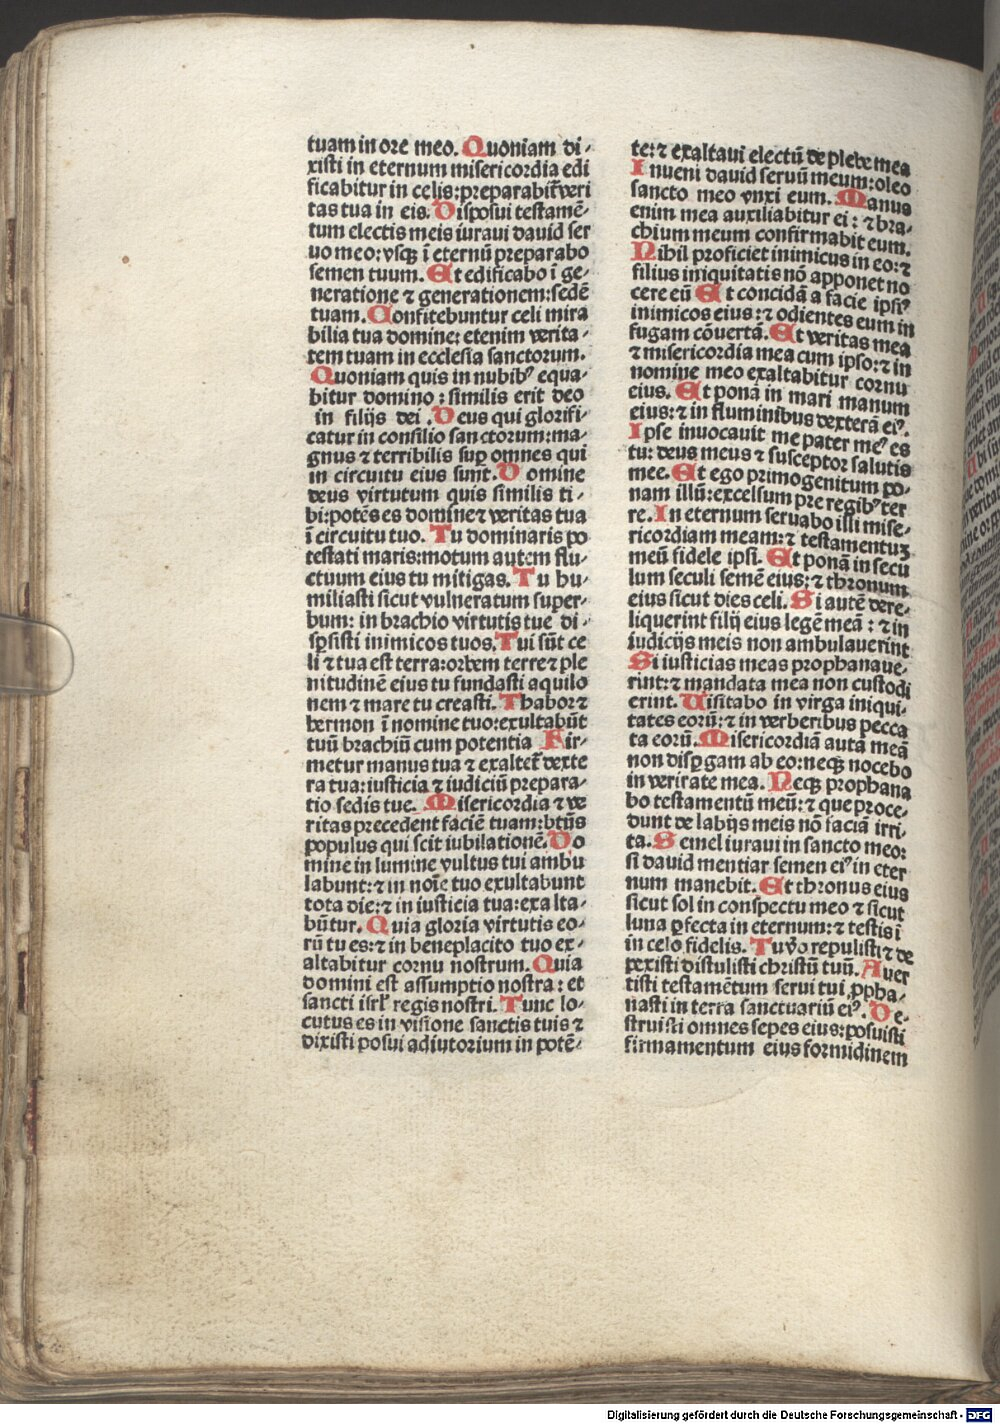 tuam in ore meo. Quoniam di⸗
xisti in eternum misericordia edi
ficabitur in celis: preparabit̃ veri
tas tua in eis. Disposui testamē⸗
tum electis meis iuravi david ser
uo meo: vsqꝫ ī eternū preparabo
semen tuum. Et edificabo ī ge⸗
neratione ⁊ generationem: sedē
tuam. Confitebuntur celi mira
bilia tua domine: etenim verita⸗
tem tuam in ecclesia sanctorum.
Quoniam quis in nubibꝰ equa⸗
bitur domino : similis erit deo
in filijs dei . Deus qui glorifi⸗
catur in consilio sanctorum: ma⸗
gnus ⁊ terribilis suꝑ omnes qui
in circuitu eius sunt. Domine
deus virtutum quis similis ti⸗
bi: potēs es domine ⁊ veritas tua
ī circuitu tuo. Tu dominaris po
testati maris: motum autem flu⸗
ctuum eius tu mitigas. Tu hu⸗
miliasti sicut vulneratum super⸗
bum: in brachio virtutis tue di⸗
sꝑsisti inimicos tuos. Tui sūt ce
li ⁊ tua est terra: orbem terre ⁊ ple
nitudinē eius tu fundasti aquilo
nem ⁊ mare tu creasti. Thabor ⁊
hermon ī nomine tuo: exultabūt
tuū brachiū cum potentia Fir⸗
metur manus tua ⁊ exaltet̃ dexte
ra tua: iusticia ⁊ iudiciū prepara⸗
tio sedis tue. Misericordia ⁊ ve
ritas precedent faciē tuam: btūs
populus qui scit iubilationē. Do
mine in lumine vultus tui ambu
labunt: ⁊ in noīe tuo exultabunt
tota die: ⁊ in iusticia tua: exalta⸗
būtur. Quia gloria virtutis eo⸗
rū tu es: ⁊ in beneplacito tuo ex⸗
altabitur cornu nostrum. Quia
domini est assumptio nostra: et
sancti isrl̓ regis nostri. Tunc lo⸗
cutus es in visione sanctis tuis ⁊
dixisti posui adiutorium in potē⸗
te: ⁊ exaltavi electū de plebe mea
Inueni david seruū meum: oleo
sancto meo vnxi eum. Manus
enim mea auxiliabitur ei : ⁊ bra⸗
chium meum confirmabit eum.
Nihil proficiet inimicus in eo: ⁊
filius iniquitatis nō apponet no
cere eū Et concidā a facie ipsiꝰ
inimicos eius : ⁊ odientes eum in
fugam cōuertā. Et veritas mea
⁊ misericordia mea cum ipso: ⁊ in
nomine meo exaltabitur cornu
eius. Et ponā in mari manum
eius: ⁊ in fluminibus dexterā eiꝰ.
Ipse inuocauit me pater meꝰ es
tu: deus meus ⁊ susceptor salutis
mee. Et ego primogenitum po⸗
nam illū: excelsum pre regibꝰ ter
re. In eternum seruabo illi mise⸗
ricordiam meam: ⁊ testamentuꝫ
meū fidele ipsi. Et ponā in secu
lum seculi semē eius: ⁊ thronum
eius sicut dies celi. Si autē dere⸗
liquerint filij eius legē meā : ⁊ in
iudicijs meis non ambulauerint
Si iusticias meas prophanaue⸗
rint: ⁊ mandata mea non custodi
erint. Uisitabo in virga iniqui⸗
tates eorū: ⁊ in verberibus pecca
ta eorū. Misericordiā autā meā
non disꝑgam ab eo: neqꝫ nocebo
in verirate mea. Neqꝫ prophana
bo testamentū meū: ⁊ que proce⸗
dunt de labijs meis nō faciā irri⸗
ta. Semel iuraui in sancto meo:
si david mentiar semen eiꝰ in eter
num manebit. Et thronus eius
sicut sol in conspectu meo ⁊ sicut
luna ꝑfecta in eternum: ⁊ testis ī
in celo fidelis. Tu v̓o repulisti ⁊ de
pexisti distulisti christū tuū. Auer
tisti testamētum serui tui ꝓpha⸗
nasti in terra sanctuariū eiꝰ. De⸗
struisti omnes sepes eius: posuisti
firmamentum eius formidinem
Digitalisierung gefördert durch die Deutsche Forschungsgemeinschaft - DFG